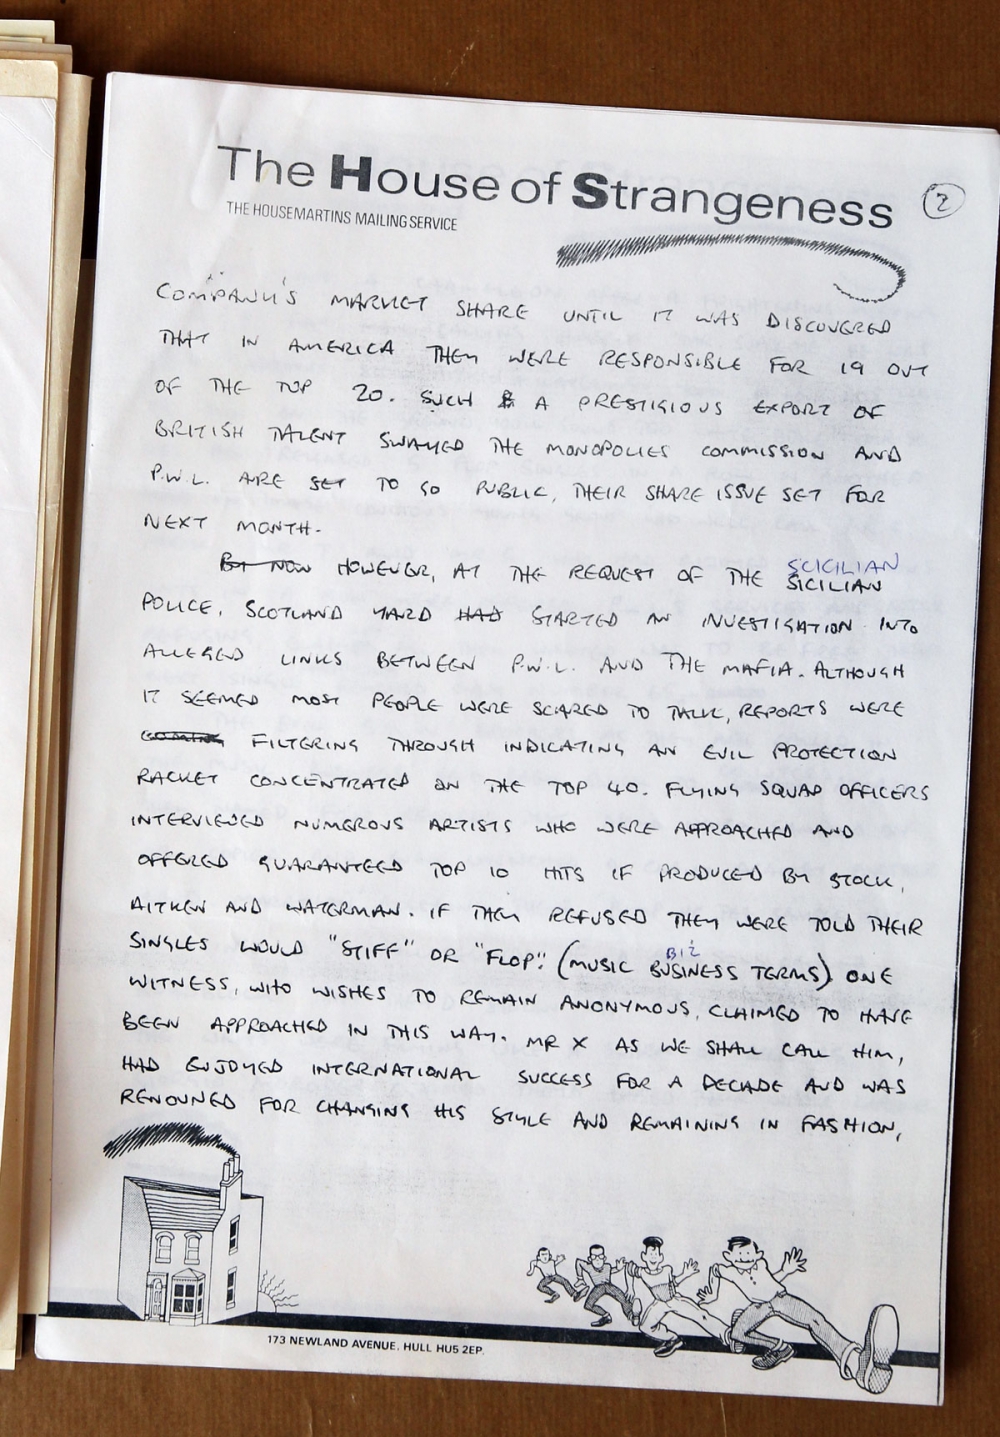 The House of Strangeness
2
THE HOUSEMARTINS MAILING SERVICE
COMPANY'S MARKET SHARE UNTIL IT WAS DISCOVERED
THAT IN AMERICA THEY WERE RESPONSIBLE FOR 19 OUT
OF THE TOP 20. SUCH A PRESTIGIOUS EXPORT OF
BRITISH TALENT SWAYED THE MONOPOLIES COMMISSION AND
P.W.L. ARE SET TO GO PUBLIC, THEIR SHARE ISSUE SET FOR
NEXT MONTH.
BY NOW HOWEVER, AT THE REQUEST OF THE SICILIAN
SCICILIAN
POLICE, SCOTLAND YARD HAD STARTED AN INVESTIGATION INTO
ALLEGED LINKS BETWEEN P.W.L. AND THE MAFIA. ALTHOUGH
IT SEEMED MOST PEOPLE WERE SCARED TO TALK, REPORTS WERE
COMING FILTERING THROUGH INDICATING AN EVIL PROTECTION
RACKET CONCENTRATED ON THE TOP 40. FLYING SQUAD OFFICERS
INTERVIEWED NUMEROUS ARTISTS WHO WERE APPROACHED AND
OFFERED GUARANTEED TOP 10 HITS IF PRODUCED BY STOCK,
AITKEN AND WATERMAN. IF THEY REFUSED THEY WERE TOLD THEIR
SINGLES WOULD "STIFF" OR "FLOP". (MUSIC BUSINESS TERMS) ONE
BIZ
WITNESS, WHO WISHES TO REMAIN ANONYMOUS, CLAIMED TO HAVE
BEEN APPROACHED IN THIS WAY. MR X AS WE SHALL CALL HIM,
HAD ENJOYED INTERNATIONAL SUCCESS FOR A DECADE AND WAS
RENOUNED FOR CHANGING HIS STYLE AND REMAINING IN FASHION,
173 NEWLAND AVENUE. HULL HU5 2EP.